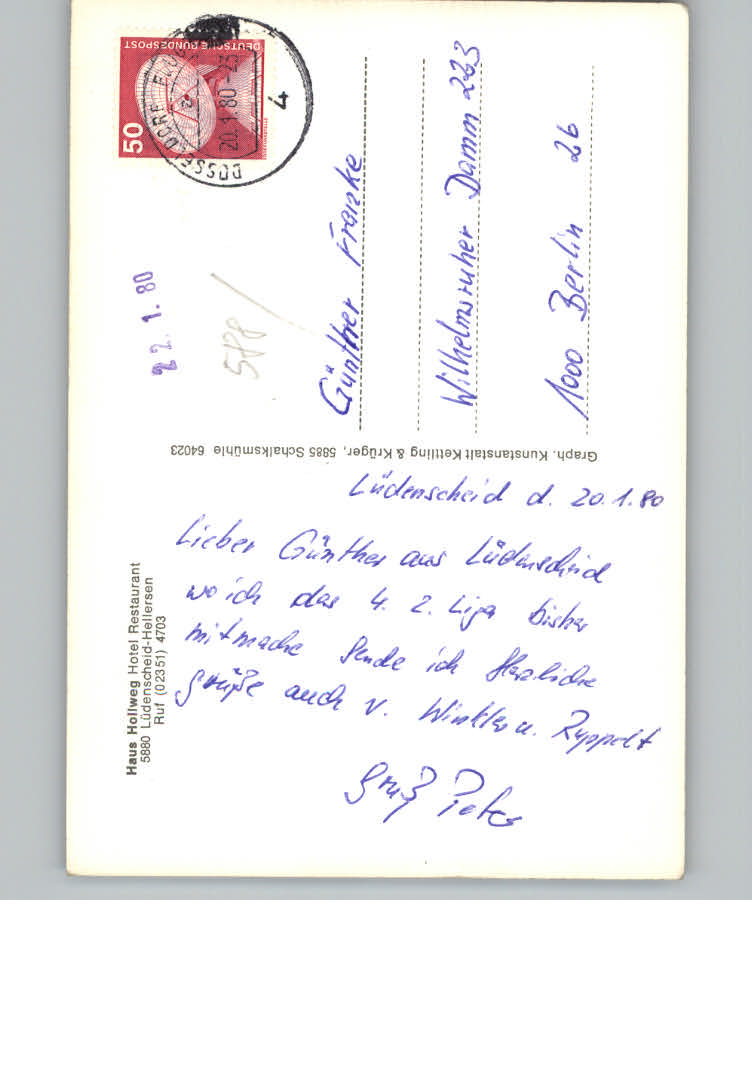 Haus Hollweg Hotel Restaurant
5880 Lüdenscheid-Hellersen
Ruf (02351) 4703
Lüdenscheid d. 20.1.80
Lieber Günther aus Lüdenscheid
wo ich das 4. 2. Liga bisher
mitmache sende ich Herzliche
Grüße auch v. Winkler u. Ruppelt
Gruß Peter
Graph. Kunstanstalt Kettling & Krüger, 5885 Schalksmühle 64023
DEUTSCHE BUNDESPOST
50
DÜSSELDORF
20.1.80-23
4
22.1.80
588/
Günther Franzke
Wilhelmsruher Damm 223
1000 Berlin 26